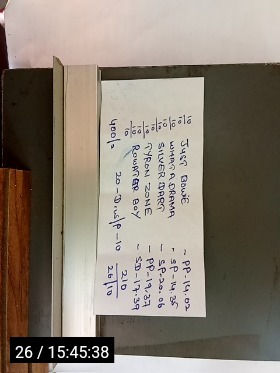 10/10 JUST BOWIE - PP-14.02
10/10 WHAT A DRAMA - SP-14.35
10/10 SILVER DART - SP-20.06
10/10 TYRON ZONE - PP-19.37
10/10 ROWATER BOY - SD-17.39
400/- 20-Dis/P-10 20
20/10
26 / 15:45:38